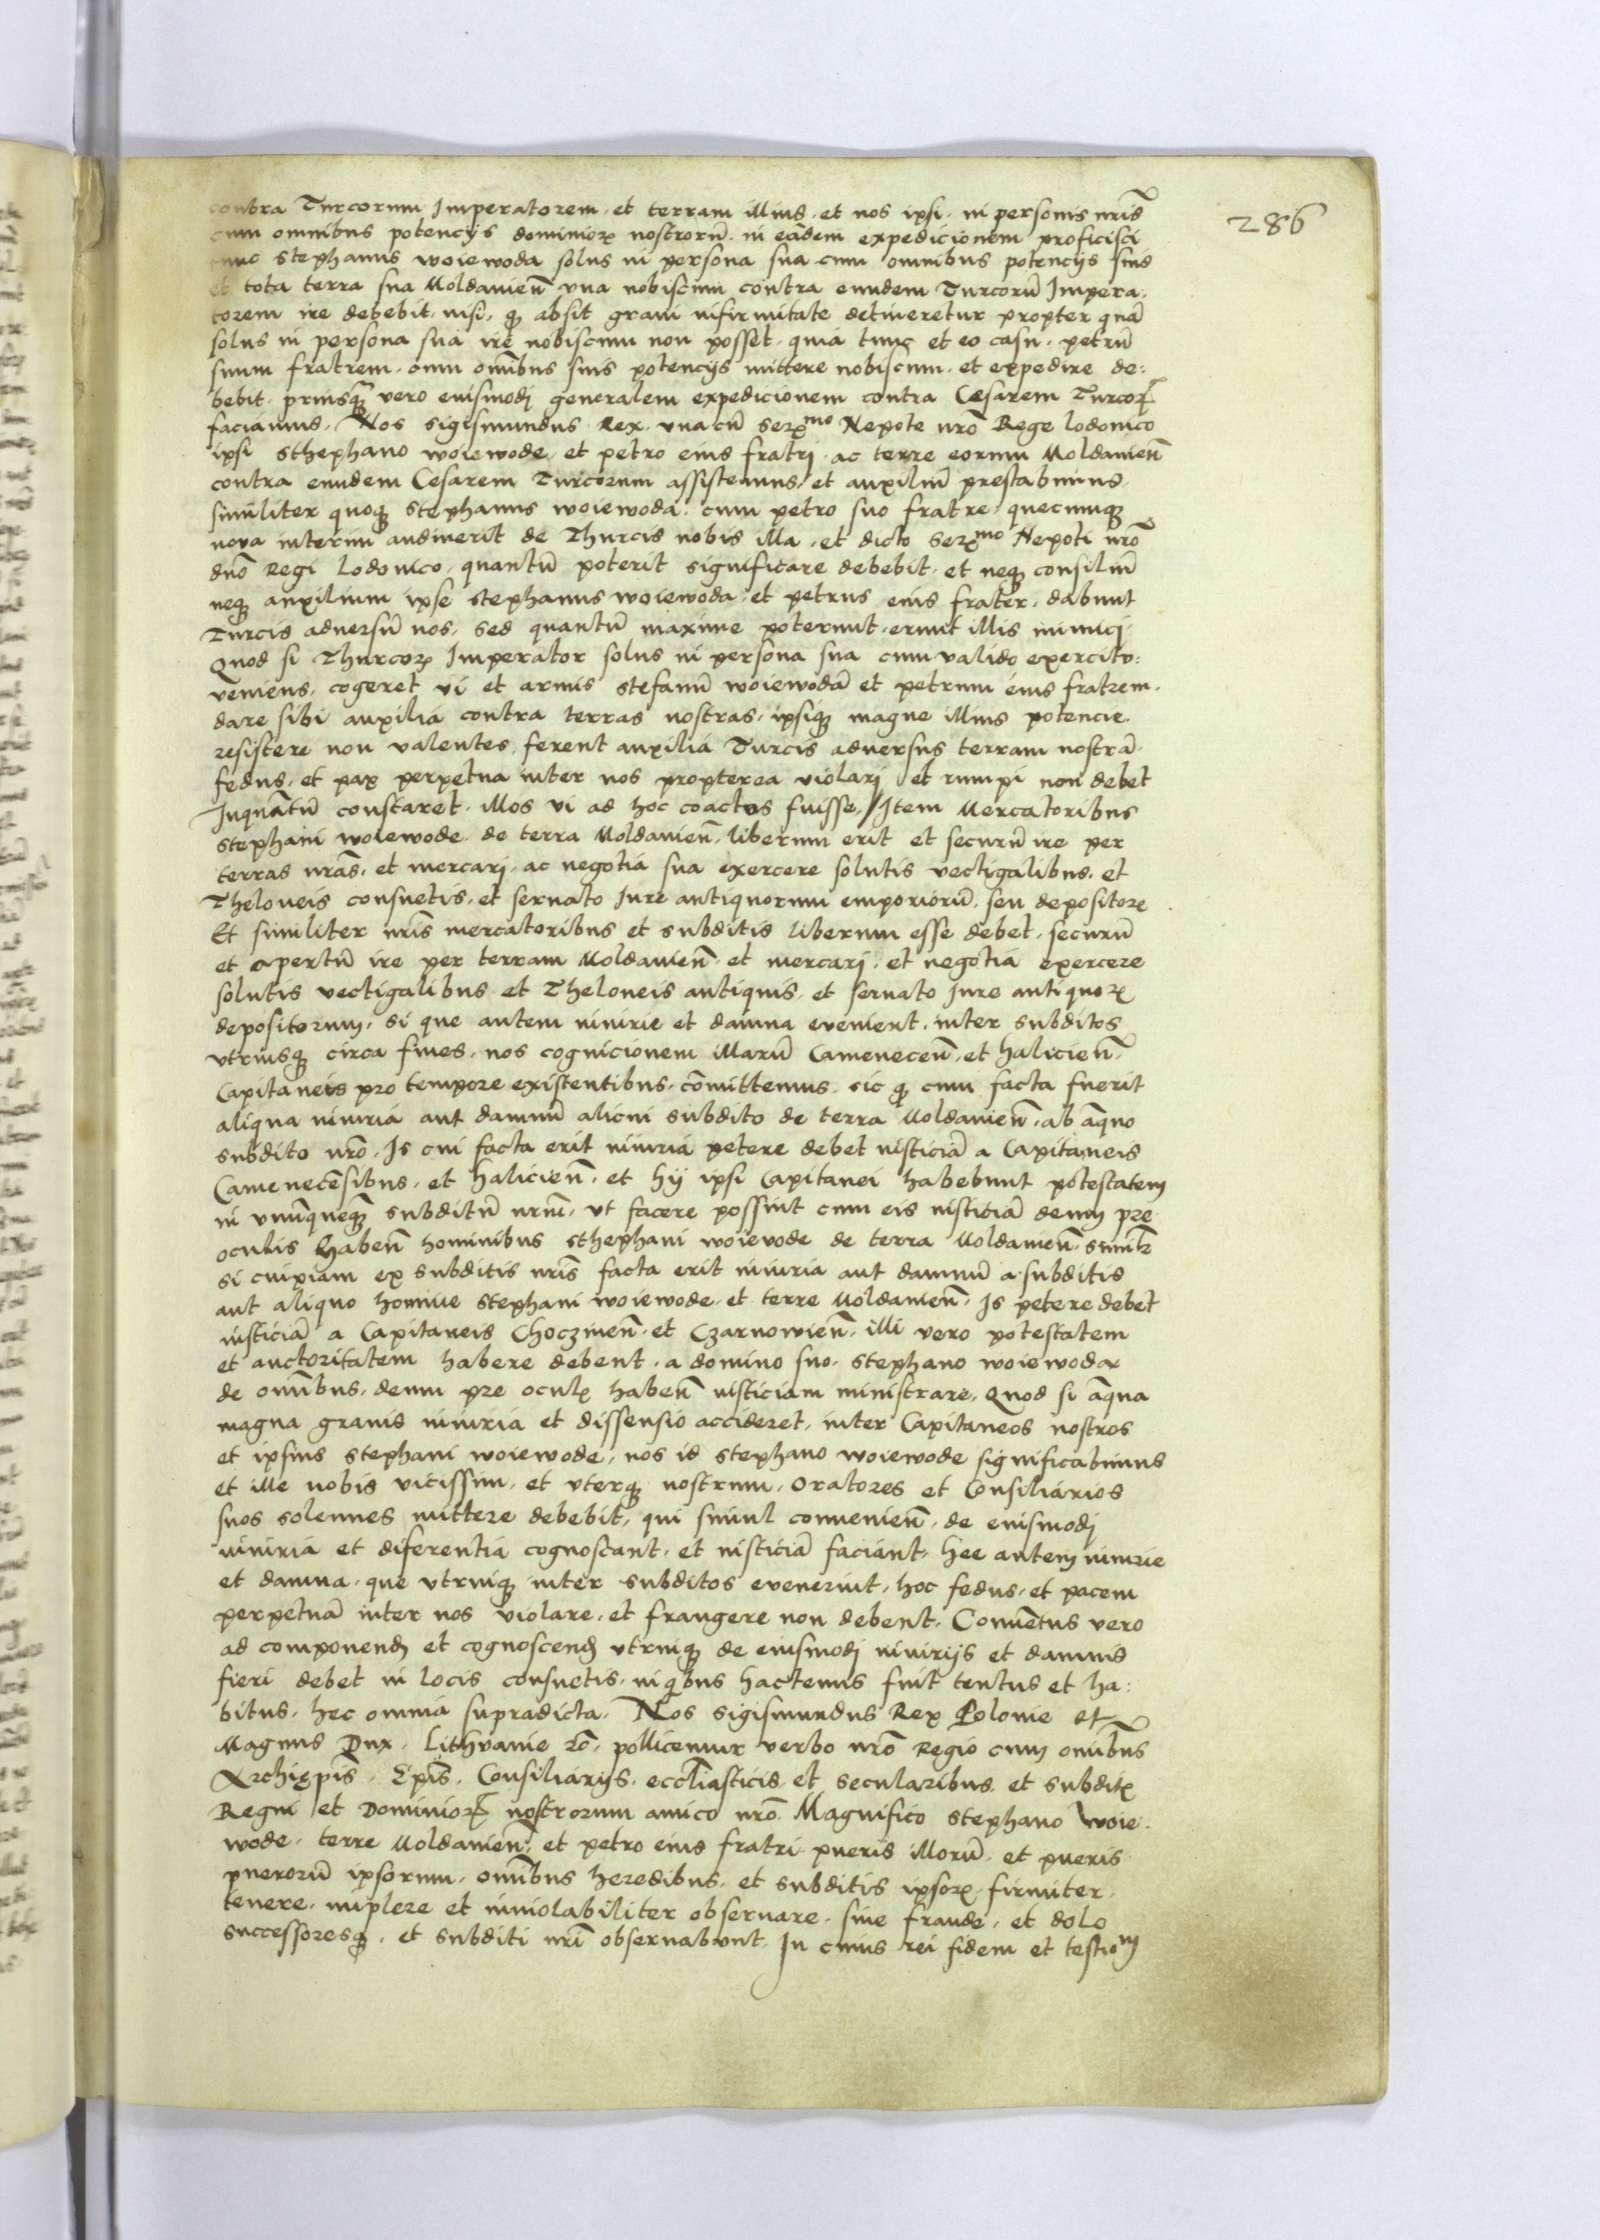 286
contra Turcorum Imperatorem, et terram illius, et nos ipsi, in personis nrīs
cum omnibus potencijs dominioꝝ nostrorū, in eādem expedicionem proficisci
tunc Stephanus woiewoda solus in persona sua cum omnibus potencijs suis
et tota terra sua Moldauieñ vna nobiscum contra eundem Turcorū Impera,
torem ire debebit, nisi, qꝫ absit graui infirmitate detineretur propter quā
solus in persona sua ire nobiscum non posset, quia tunc et eo casu, petrū
suum fratrem, cum oībus suis potencijs mittere nobiscum, et expedire de:
bebit, priusqꝫ vero eiusmodj generalem expedicionem contra Cesarem Turcoꝝ
faciamus, Nos Sigismundus Rex, vnacū Serᵐᵒ Nepote nrō Rege lodouico
ipsi Sthephano woiewode, et petro eius fratri, ac terre eorum Moldauieñ
contra eundem Cesarem Turcorum assistemus, et auxiliū prestabimus,
similiter quoqꝫ Stephanus woiewoda, cum petro suo fratre, quecunqꝫ
noua interim audiuerit de Thurcis nobis illa, et dicto Serᵐᵒ Nepoti nrō
dnō Regi Lodouico, quantū poterit significare debebit, et neqꝫ consiliū
neqꝫ auxilium ipse Stephanus woiewoda, et petrus eius frater, dabunt
Turcis aduersū nos, sed quantū maxime poterunt, erunt illis inimicj
Quod si Thurcoꝝ Imperator solus in persona sua cum valido exercito:
veniens, cogeret vi et armis Stefanū woiewodā et petrum eius fratrem,
dare sibi auxilia contra terras nostras, ipsiqꝫ magne illius potencie
resistere non valentes, ferent auxilia Turcis aduersus terram nostrā,
fedus, et pax perpetua inter nos propterea violarj et rumpi non debet
Inquātū constaret, illos vi ad hoc coactos fuisse, / Item Mercatoribus
Stephani woiewode de terra Moldauieñ, liberum erit et securū ire per
terras nrās, et mercarj, ac negotia sua exercere solutis vectigalibus, et
Theloneis consuetis, et seruato Iure antiquorum emporiorū, seu depositore
Et similiter nrīs mercatoribus et subditis liberum esse debet, securū
et apertū ire per terram Moldauieñ et mercarj, et negotia exercere
solutis vectigalibus et Theloneis antiquis, et seruato Iure antiquoꝝ
depositorum, Si que autem iniurie et damna euenient, inter subditos
vtriusqꝫ circa fines, nos cognicionem illarū Cameneceñ, et halicieñ,
Capitaneis pro tempore existentibus, cōmittemus, sic qꝫ cum facta fuerit
aliqua iniuria aut damnū alicui subdito de terra Moldauieñ, ab āquo
subdito nrō, Is cui facta erit iniuria petere debet iusticiā a Capitaneis
Camenecēsibus, et halicieñ, et hij ipsi Capitanei habebunt potestatem
in vnūquēqꝫ subditū nrūm, vt facere possint cum eis iusticiā deum pre
oculis habeñ hominibus Sthephani woieuode de terra Moldauieñ, similꝝ
si cuipiam ex subditis nrīs facta erit iniuria aut damnū a subditis
aut aliquo homine Stephani woiewode, et terre Moldauieñ, Is petere debet
iusticiā a Capitaneis Choczimeñ, et Czarnowieñ, illi vero potestatem
et auctoritatem habere debent, a domino suo, Stephano woiewoda
de oībus, deum pre oculꝭ habeñ iusticiam ministrare, Quod si āqua
magna grauis iniuria et dissensio accideret, inter Capitaneos nostros
et ipsius Stephani woiewode, nos id Stephano woiewode significabimus
et ille nobis vicissim, et vterqꝫ nostrum, Oratores et Consiliarios
suos solennes mittere debebit, qui simul conuenieñ, de eiusmodj
iniuria et diferentia cognoscant, et iusticiā faciant, hee autem iniurie
et damna, que vtrinqꝫ inter subditos euenerint, hoc fedus, et pacem
perpetuā inter nos violare, et frangere non debent, Conuētus vero
ad componendꝫ et cognoscendꝫ vtrinqꝫ de eiusmodj iniurijs et damnis
fieri debet in locis consuetis, in qībus hactenus fuit tentus et ha:
bitus, hec omnia supradicta, Nos Sigismundus Rex Polonie et
Magnus Dux, Lithvanie rc̄, pollicemur verbo nrō Regio cum oībus
Archiepīs, Epīs, Consiliarijs, eccliasticis, et secularibus, et subditꝭ
Regni et Dominioꝝ nostrorum amico nrō Magnifico Stephano woie,
wode, terre Moldauieñ, et petro eius fratri pueris illorū, et pueris
puerorū ipsorum, oībus heredibus, et subditis ipsoꝝ, firmiter,
tenere, implere et inuiolabiliter obseruare, sine fraude, et dolo
successoresqꝫ, et subditi nrī obseruabunt, In cuius rei fidem et testioᵐ